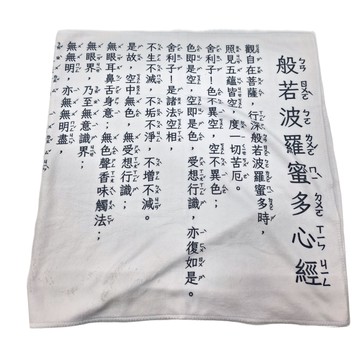 般若波羅蜜多心經
觀自在菩薩，行深般若波羅蜜多時，
照見五蘊皆空，度一切苦厄。
舍利子！色不異空，空不異色；
色即是空，空即是色，受想行識，亦復如是。
舍利子！是諸法空相，
不生不滅，不垢不淨，不增不減。
是故，空中無色，無受想行識；
無眼耳鼻舌身意；無色聲香味觸法；
無眼界，乃至無意識界；
無無明，亦無無明盡，